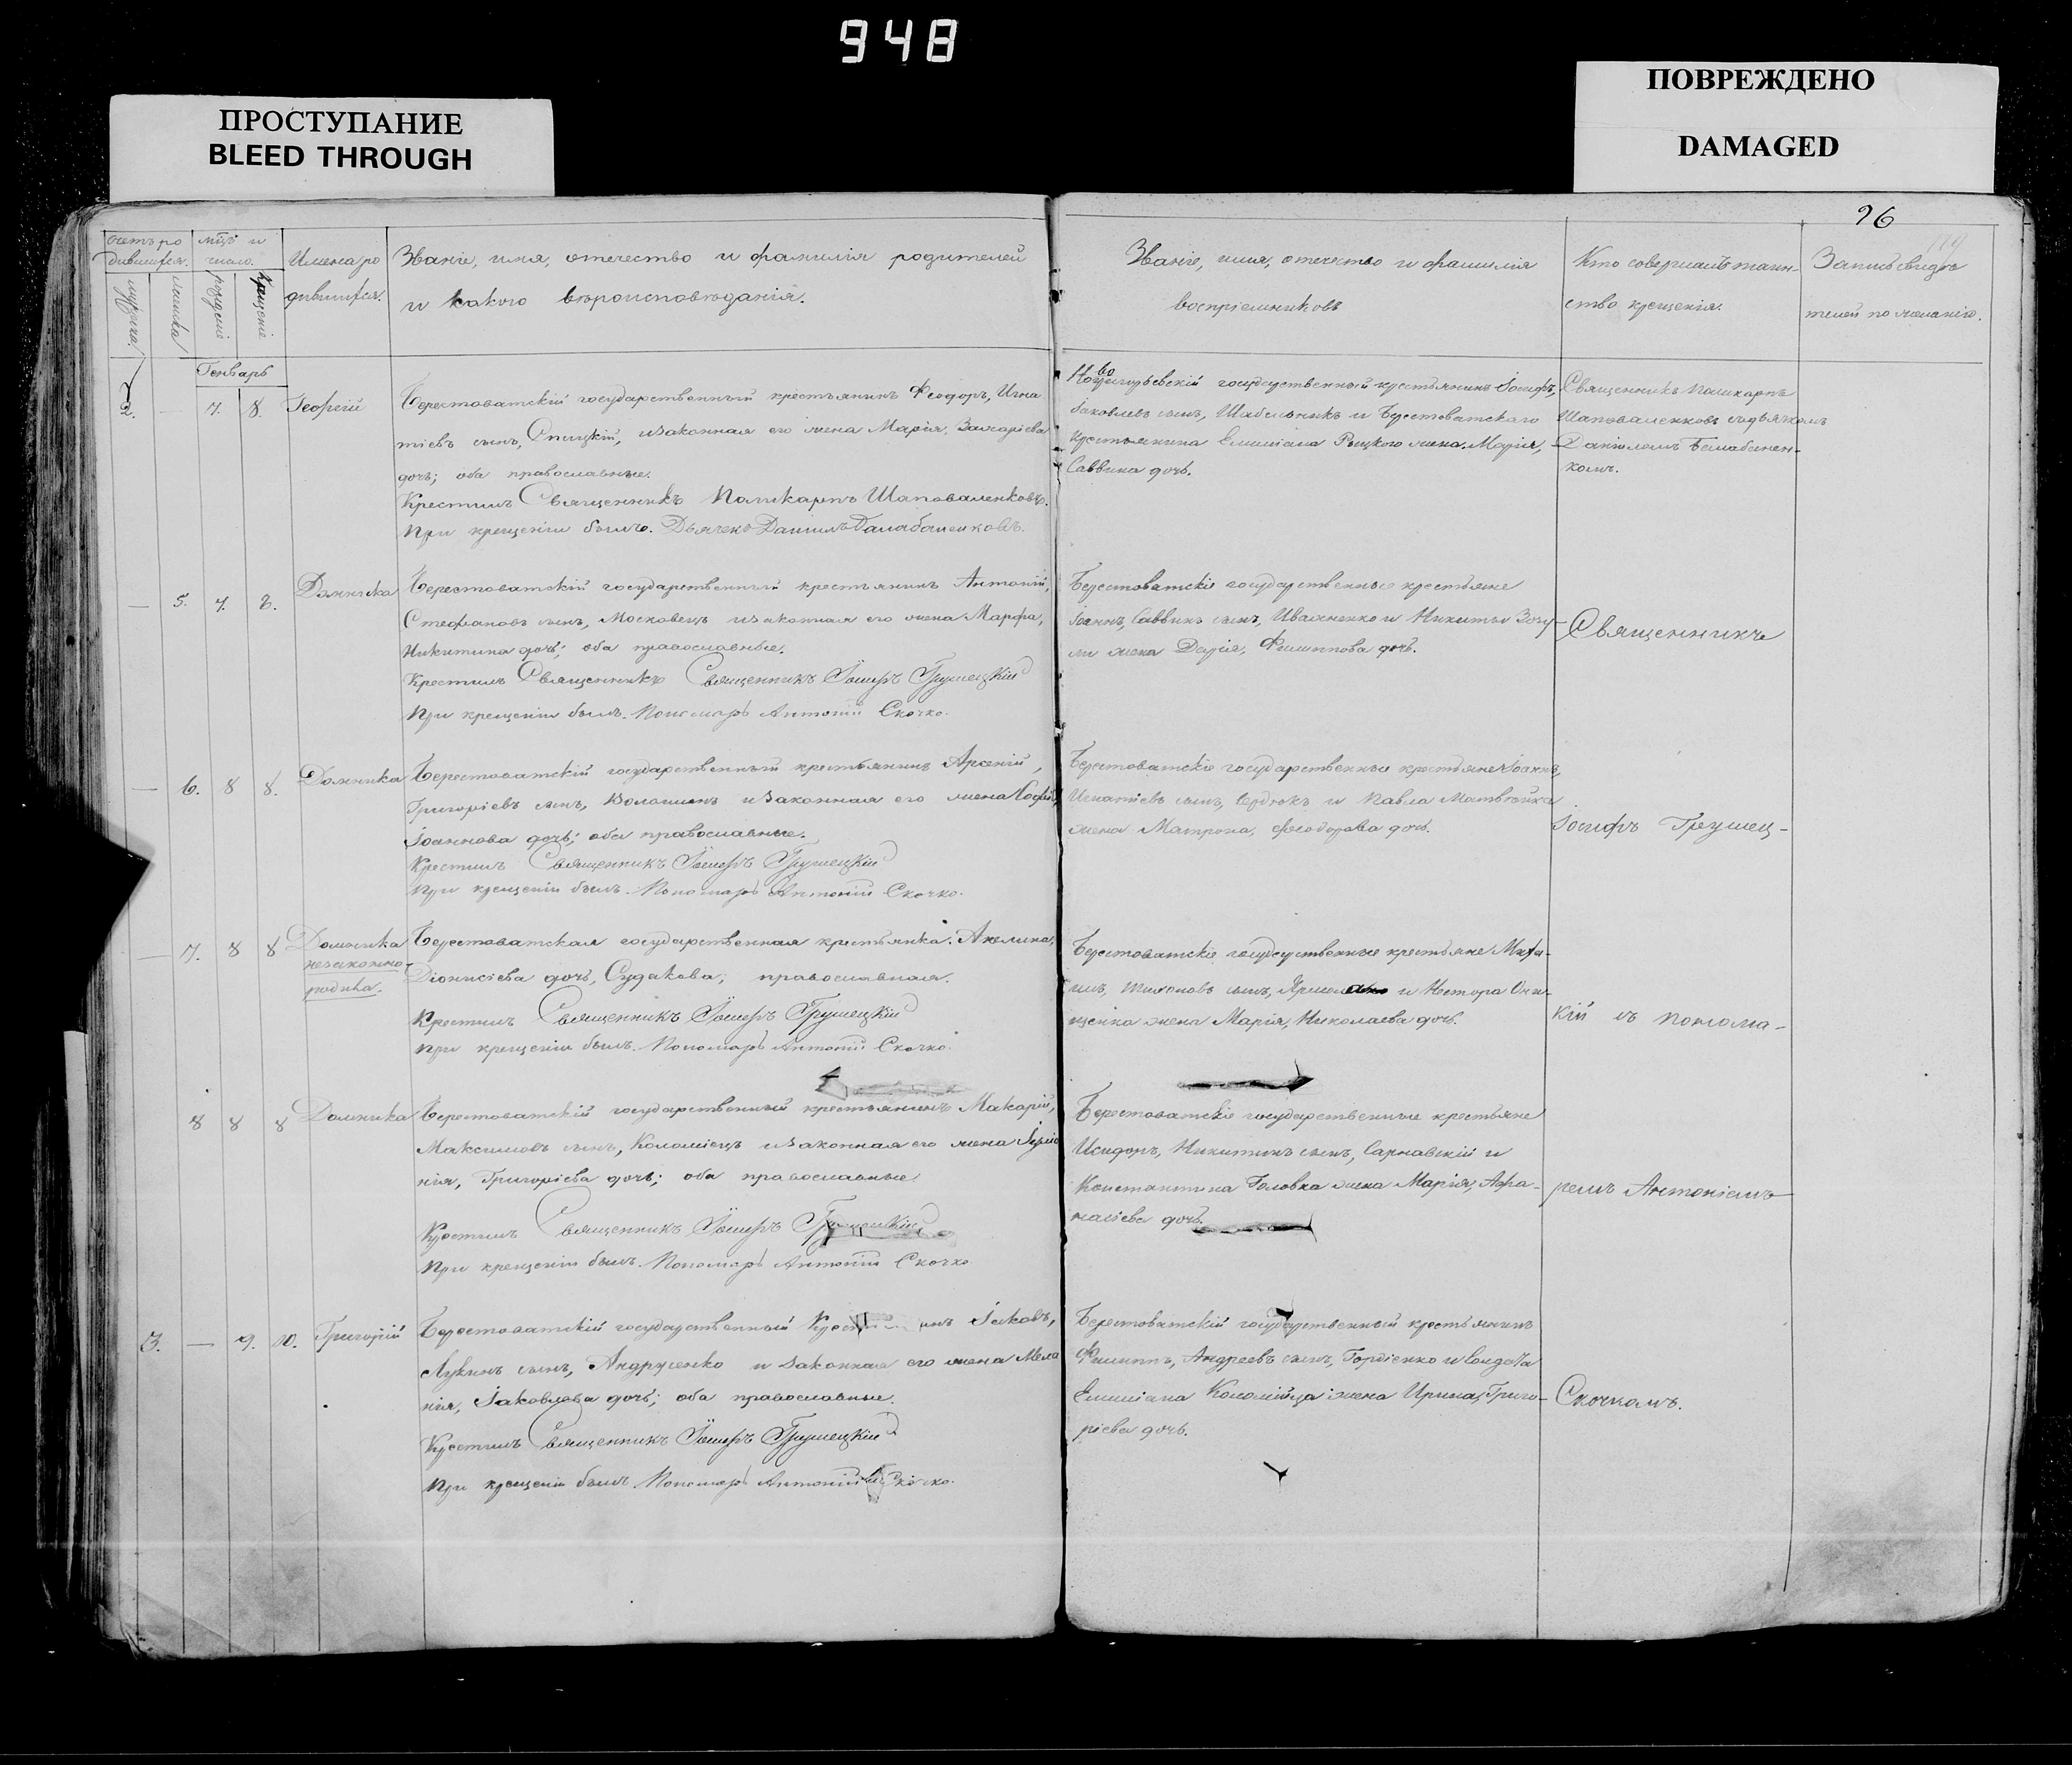 948
ПРОСТУПАНИЕ
BLEED THROUGH
ПОВРЕЖДЕНО
DAMAGED
96
Счетъ ро
дившихся.
мужеска.
женска
мцъ и
число.
рожденiе
Крещенiе
Имена ро
дившихся.
Званiе, имя, отечество и фамилiя родителей
и какого вѣроисповѣданiя.
Званiе, имя, отечество и фамилiя
воспрiемниковъ
Кто совершалъ таин-
ство крещенiя.
Запись свидѣ
телей по желанiю.
Генварь
2. — 7. 8. Георгiй
Берестоватскiй государственный крестьянинъ Феодоръ, Игна
тiевъ сынъ, и законная его жена Марiя, Захарiева
дочь; оба православные.
Крестилъ Священникъ Поликарпъ Шаповаленковъ.
При крещенiи былъ. Дьячекъ Данiилъ
государственный крестьянинъ Iосифъ,
Iаковлевъ сынъ, Шабельникъ и Берестоватскаго
крестьянина Емилiана жена Марiя,
Саввина дочь.
Священникъ Поликарпъ
Шаповаленковъ съ дьячкомъ
Данiиломъ
комъ.
— 5. 7. 8. Домника
Берестоватскiй государственный крестьянинъ Антонiй,
Стефановъ сынъ, Московецъ и законная его жена Марфа,
Никитина дочь; оба православные.
Крестилъ Священникъ Священникъ Iосифъ Грушецкiй
При крещенiи былъ. Пономарь Антонiй Скочко.
Берестоватскiе государственные крестьяне
Iоаннъ, Саввинъ сынъ, Иваненко и Никиты Зозу
ли жена Дарiя, Филиппова дочь.
Священникъ
— 6. 8 8. Домника
Берестоватскiй государственный крестьянинъ Арсенiй,
Григорiевъ сынъ, Волошинъ и законная его жена Софiя,
Iоаннова дочь; оба православные.
Крестилъ Священникъ Iосифъ Грушецкiй
При крещенiи былъ. Пономарь Антонiй Скочко.
Берестоватскiе государственные крестьяне Iоаннъ,
Игнатiевъ сынъ, Сердюкъ и Павла
жена Матрона, Феодорова дочь.
Iосифъ Грушец-
— 7. 8 8 Домника
незаконно-
родная.
Берестоватская государственная крестьянка. Акелина,
Дiонисiева дочь, Судакова; православная.
Крестилъ Священникъ Iосифъ Грушецкiй
При крещенiи былъ. Пономарь Антонiй Скочко.
Берестоватскiе государственные крестьяне Миха-
илъ, Тихоновъ сынъ, и Нестора Они-
щенка жена Марiя, Николаева дочь.
кiй съ понома-
8 8 8 Домника
Берестоватскiй государственный крестьянинъ Макарiй,
Максимовъ сынъ, Коломiецъ и законная его жена
нiя, Григорiева дочь; оба православные.
Крестилъ Священникъ Iосифъ Грушецкiй
При крещенiи былъ. Пономарь Антонiй Скочко
Берестоватскiе государственные крестьяне
Исидоръ, Никитинъ сынъ, Сарнавскiй и
Константина Головка жена Марiя, Афа-
насiева дочь.
ремъ Антонiемъ
3. — 9. 10. Григорiй
Берестоватскiй государственный Iаковъ,
Лукинъ сынъ, Андрусенко и законная его жена Мела
нiя, Iаковлева дочь; оба православные.
Крестилъ Священникъ Iосифъ Грушецкiй
При крещенiи былъ. Пономарь Антонiй Скочко.
Берестоватскiй государственный крестьянинъ
Филиппъ, Андреевъ сынъ, Гордiенко и солдата
Емилiана Коломiйца жена Ирина, Григо-
рiева дочь.
Скочкомъ.